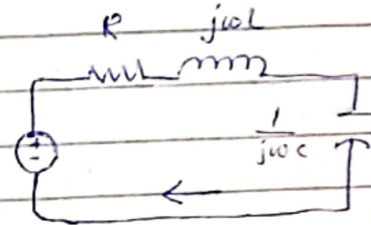 R jωL
+
-
1
jωc